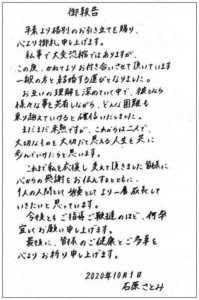 御報告
平素より格別のお引き立てを賜り、
心より御礼申し上げます。
私事で大変恐縮ではありますが、
この度、かねてよりお付き合いさせて頂いています
一般の方と結婚する運びとなりました。
お互いの理解を深めていく中で、彼となら
様々な事を共有しながら、どんな困難も
乗り越えていけると確信いたしました。
まだまだ未熟ですが、これからは二人で、
大切なものを大切だと思える人生を共に
歩んでいけたらと思います。
これまで私を応援し支えて頂きました皆様に
心からの感謝をお伝えするとともに、
1人の人間として役者としてより一層成長して
いきたいと思っています。
今後ともご指導ご鞭撻のほど、何卒
宜しくお願い申し上げます。
最後に、皆様のご健康とご多幸を
心よりお祈り申し上げます。
2020年10月1日
石原さとみ